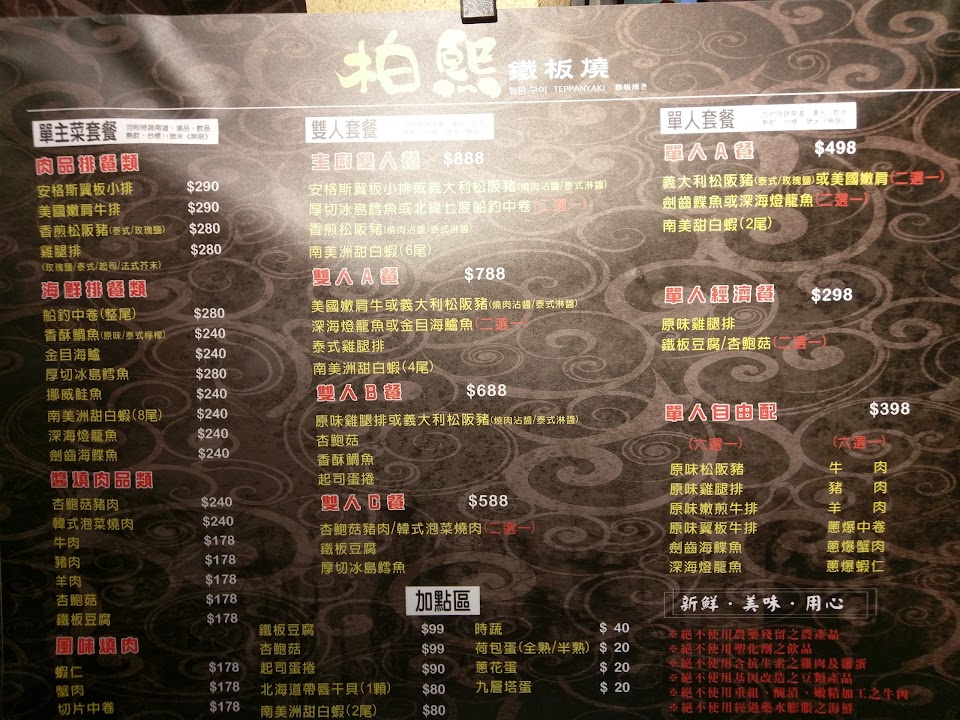 柏熙 鐵板燒
철판 구이 TEPPANYAKI 鉄板焼き
單主菜套餐
肉品排餐類
安格斯翼板小排 $290
美國嫩肩牛排 $290
香煎松阪豬(泰式/玫瑰鹽) $280
雞腿排 $280
(玫瑰鹽/泰式/起司/法式芥末)
海鮮排餐類
船釣中卷(整尾) $280
香酥鯛魚(原味/泰式檸檬) $240
金目海鱸 $240
厚切冰島鱈魚 $280
挪威鮭魚 $240
南美洲甜白蝦(8尾) $240
深海燈龍魚 $240
劍齒海鰈魚 $240
醬燒肉品類
杏鮑菇豬肉 $240
韓式泡菜燒肉 $240
牛肉 $178
豬肉 $178
羊肉 $178
杏鮑菇 $178
鐵板豆腐 $178
風味燒肉
蝦仁 $178
蟹肉 $178
切片中卷 $178
雙人套餐
主廚雙人餐 $888
安格斯翼板小排或義大利松阪豬(燒肉沾醬/泰式淋醬)
厚切冰島鱈魚或北緯七度船釣中卷(二選一)
香煎松阪豬(燒肉沾醬/泰式淋醬)
南美洲甜白蝦(6尾)
雙人A餐 $788
美國嫩肩牛或義大利松阪豬(燒肉沾醬/泰式淋醬)
深海燈龍魚或金目海鱸魚(二選一)
泰式雞腿排
南美洲甜白蝦(4尾)
雙人B餐 $688
原味雞腿排或義大利松阪豬(燒肉沾醬/泰式淋醬)
杏鮑菇
香酥鯛魚
起司蛋捲
雙人C餐 $588
杏鮑菇豬肉/韓式泡菜燒肉(二選一)
鐵板豆腐
厚切冰島鱈魚
加點區
鐵板豆腐 $99
杏鮑菇 $99
起司蛋捲 $90
北海道帶唇干貝(1顆) $80
南美洲甜白蝦(2尾) $80
時蔬 $ 40
荷包蛋(全熟/半熟) $ 20
蔥花蛋 $ 20
九層塔蛋 $ 20
單人套餐
單人A餐 $498
義大利松阪豬(泰式/玫瑰鹽)或美國嫩肩(二選一)
劍齒鰈魚或深海燈龍魚(二選一)
南美洲甜白蝦(2尾)
單人經濟餐 $298
原味雞腿排
鐵板豆腐/杏鮑菇(二選一)
單人自由配 $398
(六選一) (六選一)
原味松阪豬 牛 肉
原味雞腿排 豬 肉
原味嫩煎牛排 羊 肉
原味翼板牛排 蔥爆中卷
劍齒海鰈魚 蔥爆蟹肉
深海燈龍魚 蔥爆蝦仁
新鮮・美味・用心
※絕不使用農藥殘留之農產品
※絕不使用塑化劑之飲品
※絕不使用含抗生素之雞肉及雞蛋
※絕不使用基因改造之豆類產品
※絕不使用重組、醃漬、嫩精加工之牛肉
※絕不使用經過藥水膨脹之海鮮